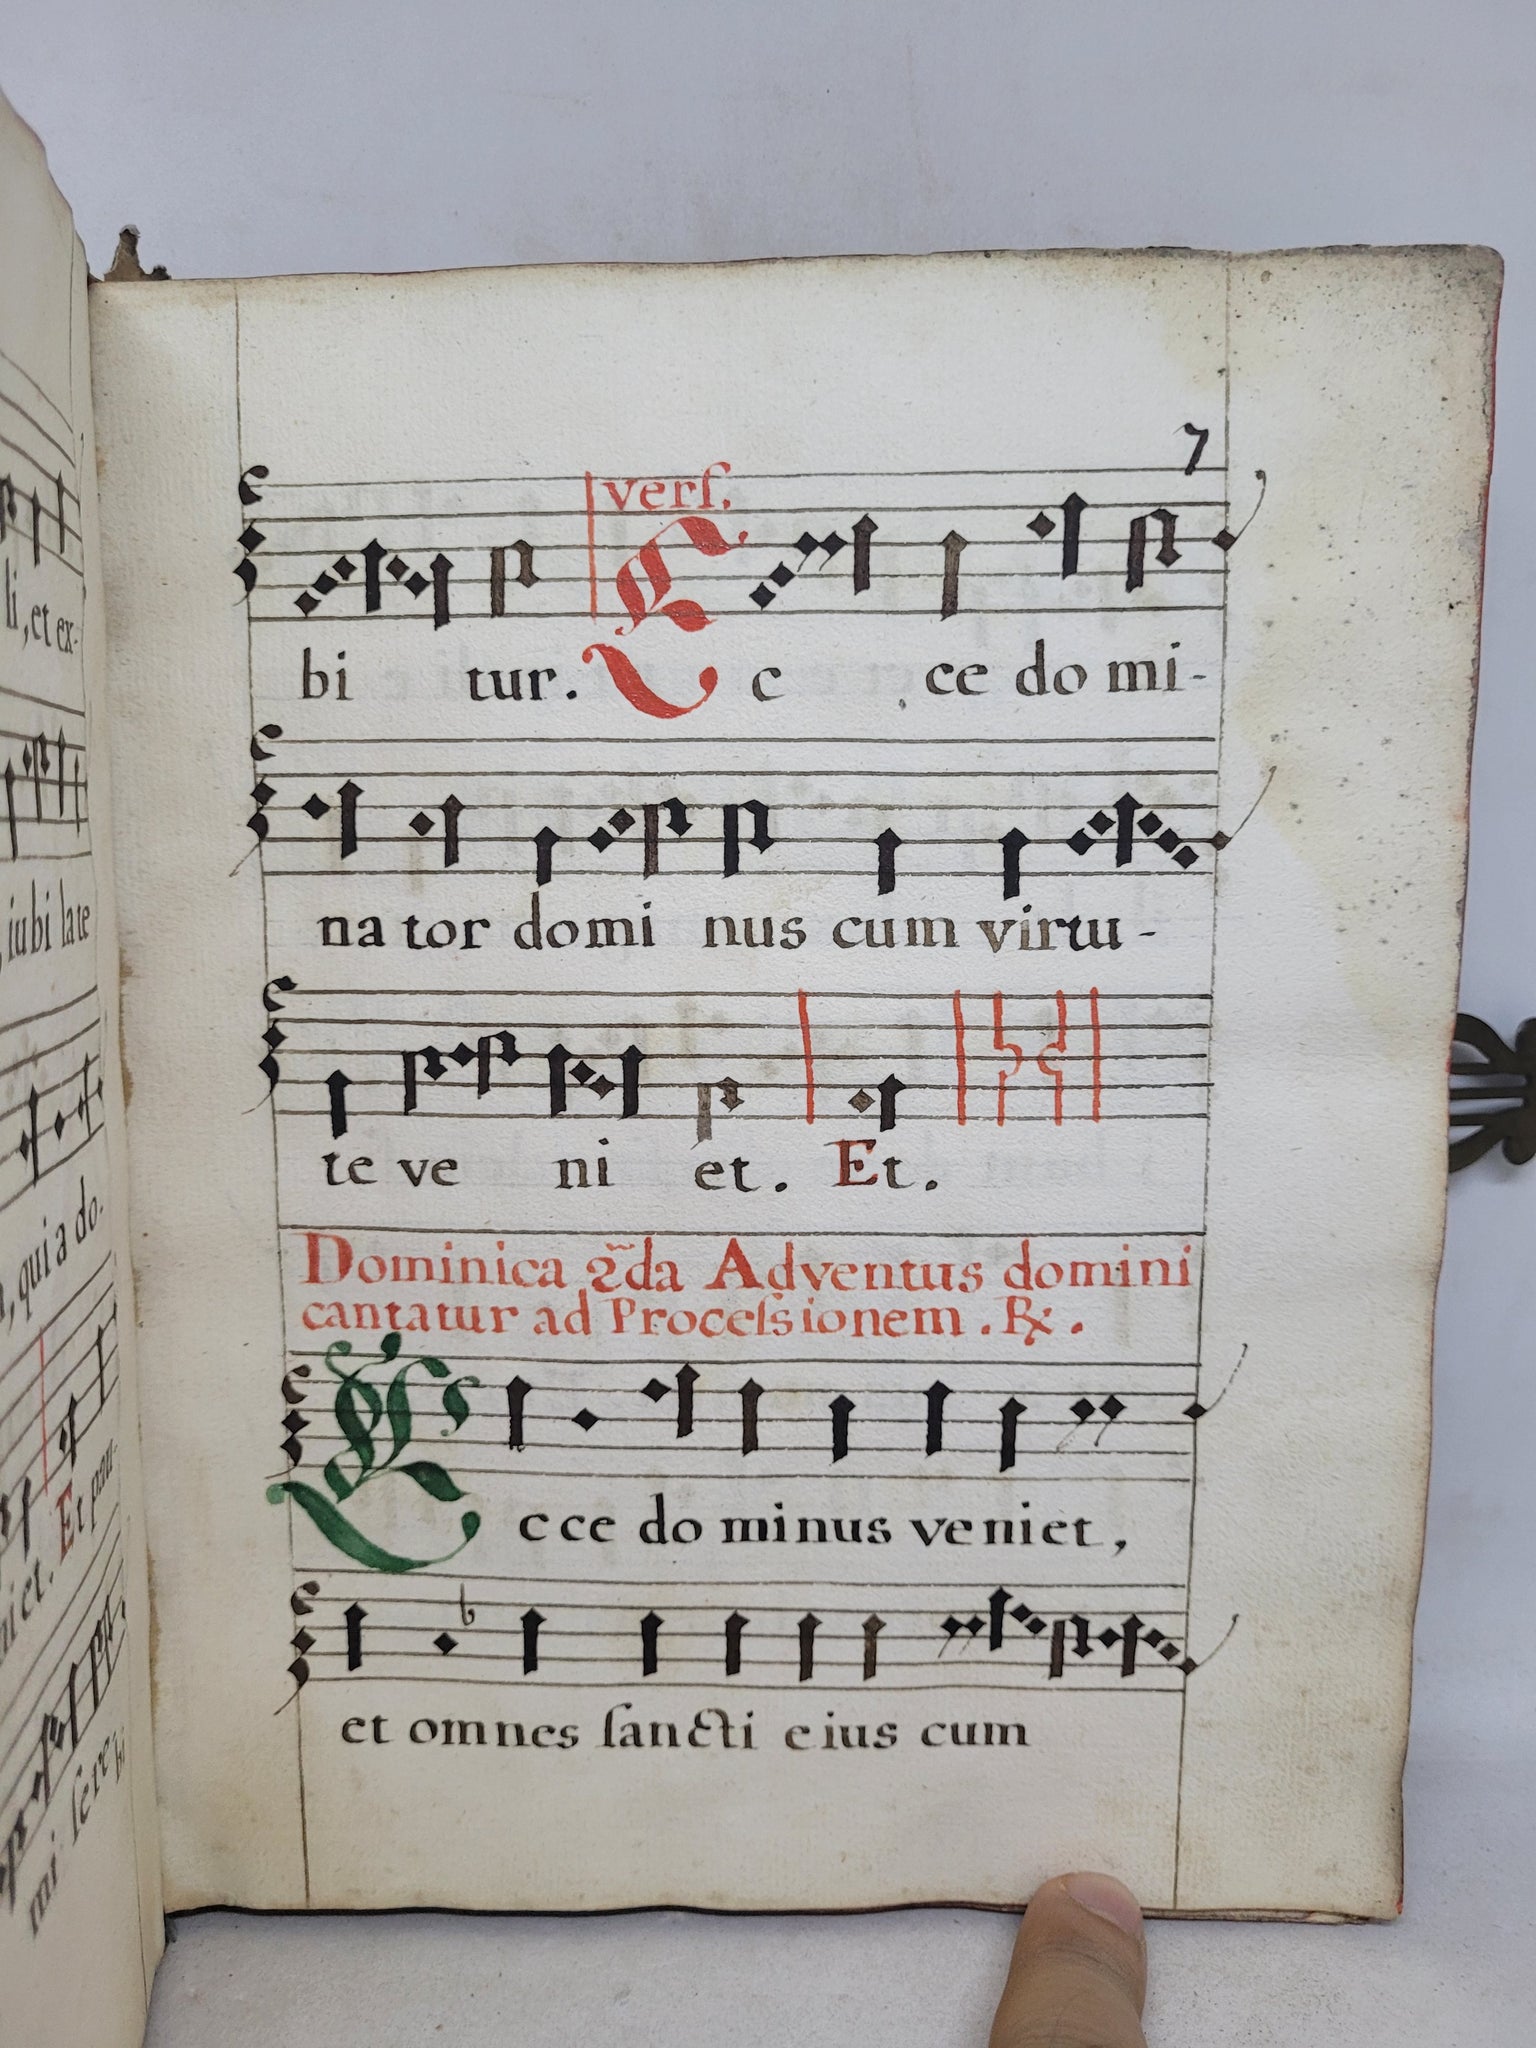 7
verſ.
bi tur. E c ce do mi-
na tor domi nus cum virtu-
te ve ni et. Et.
Dominica 2̃da Adventus domini
cantatur ad Proceſsionem. ℟.
E cce do minus ve niet,
et omnes ſancti eius cum
li, et ex-
iubi late
qui a do.
niet. Et pau-
mi ſere bi